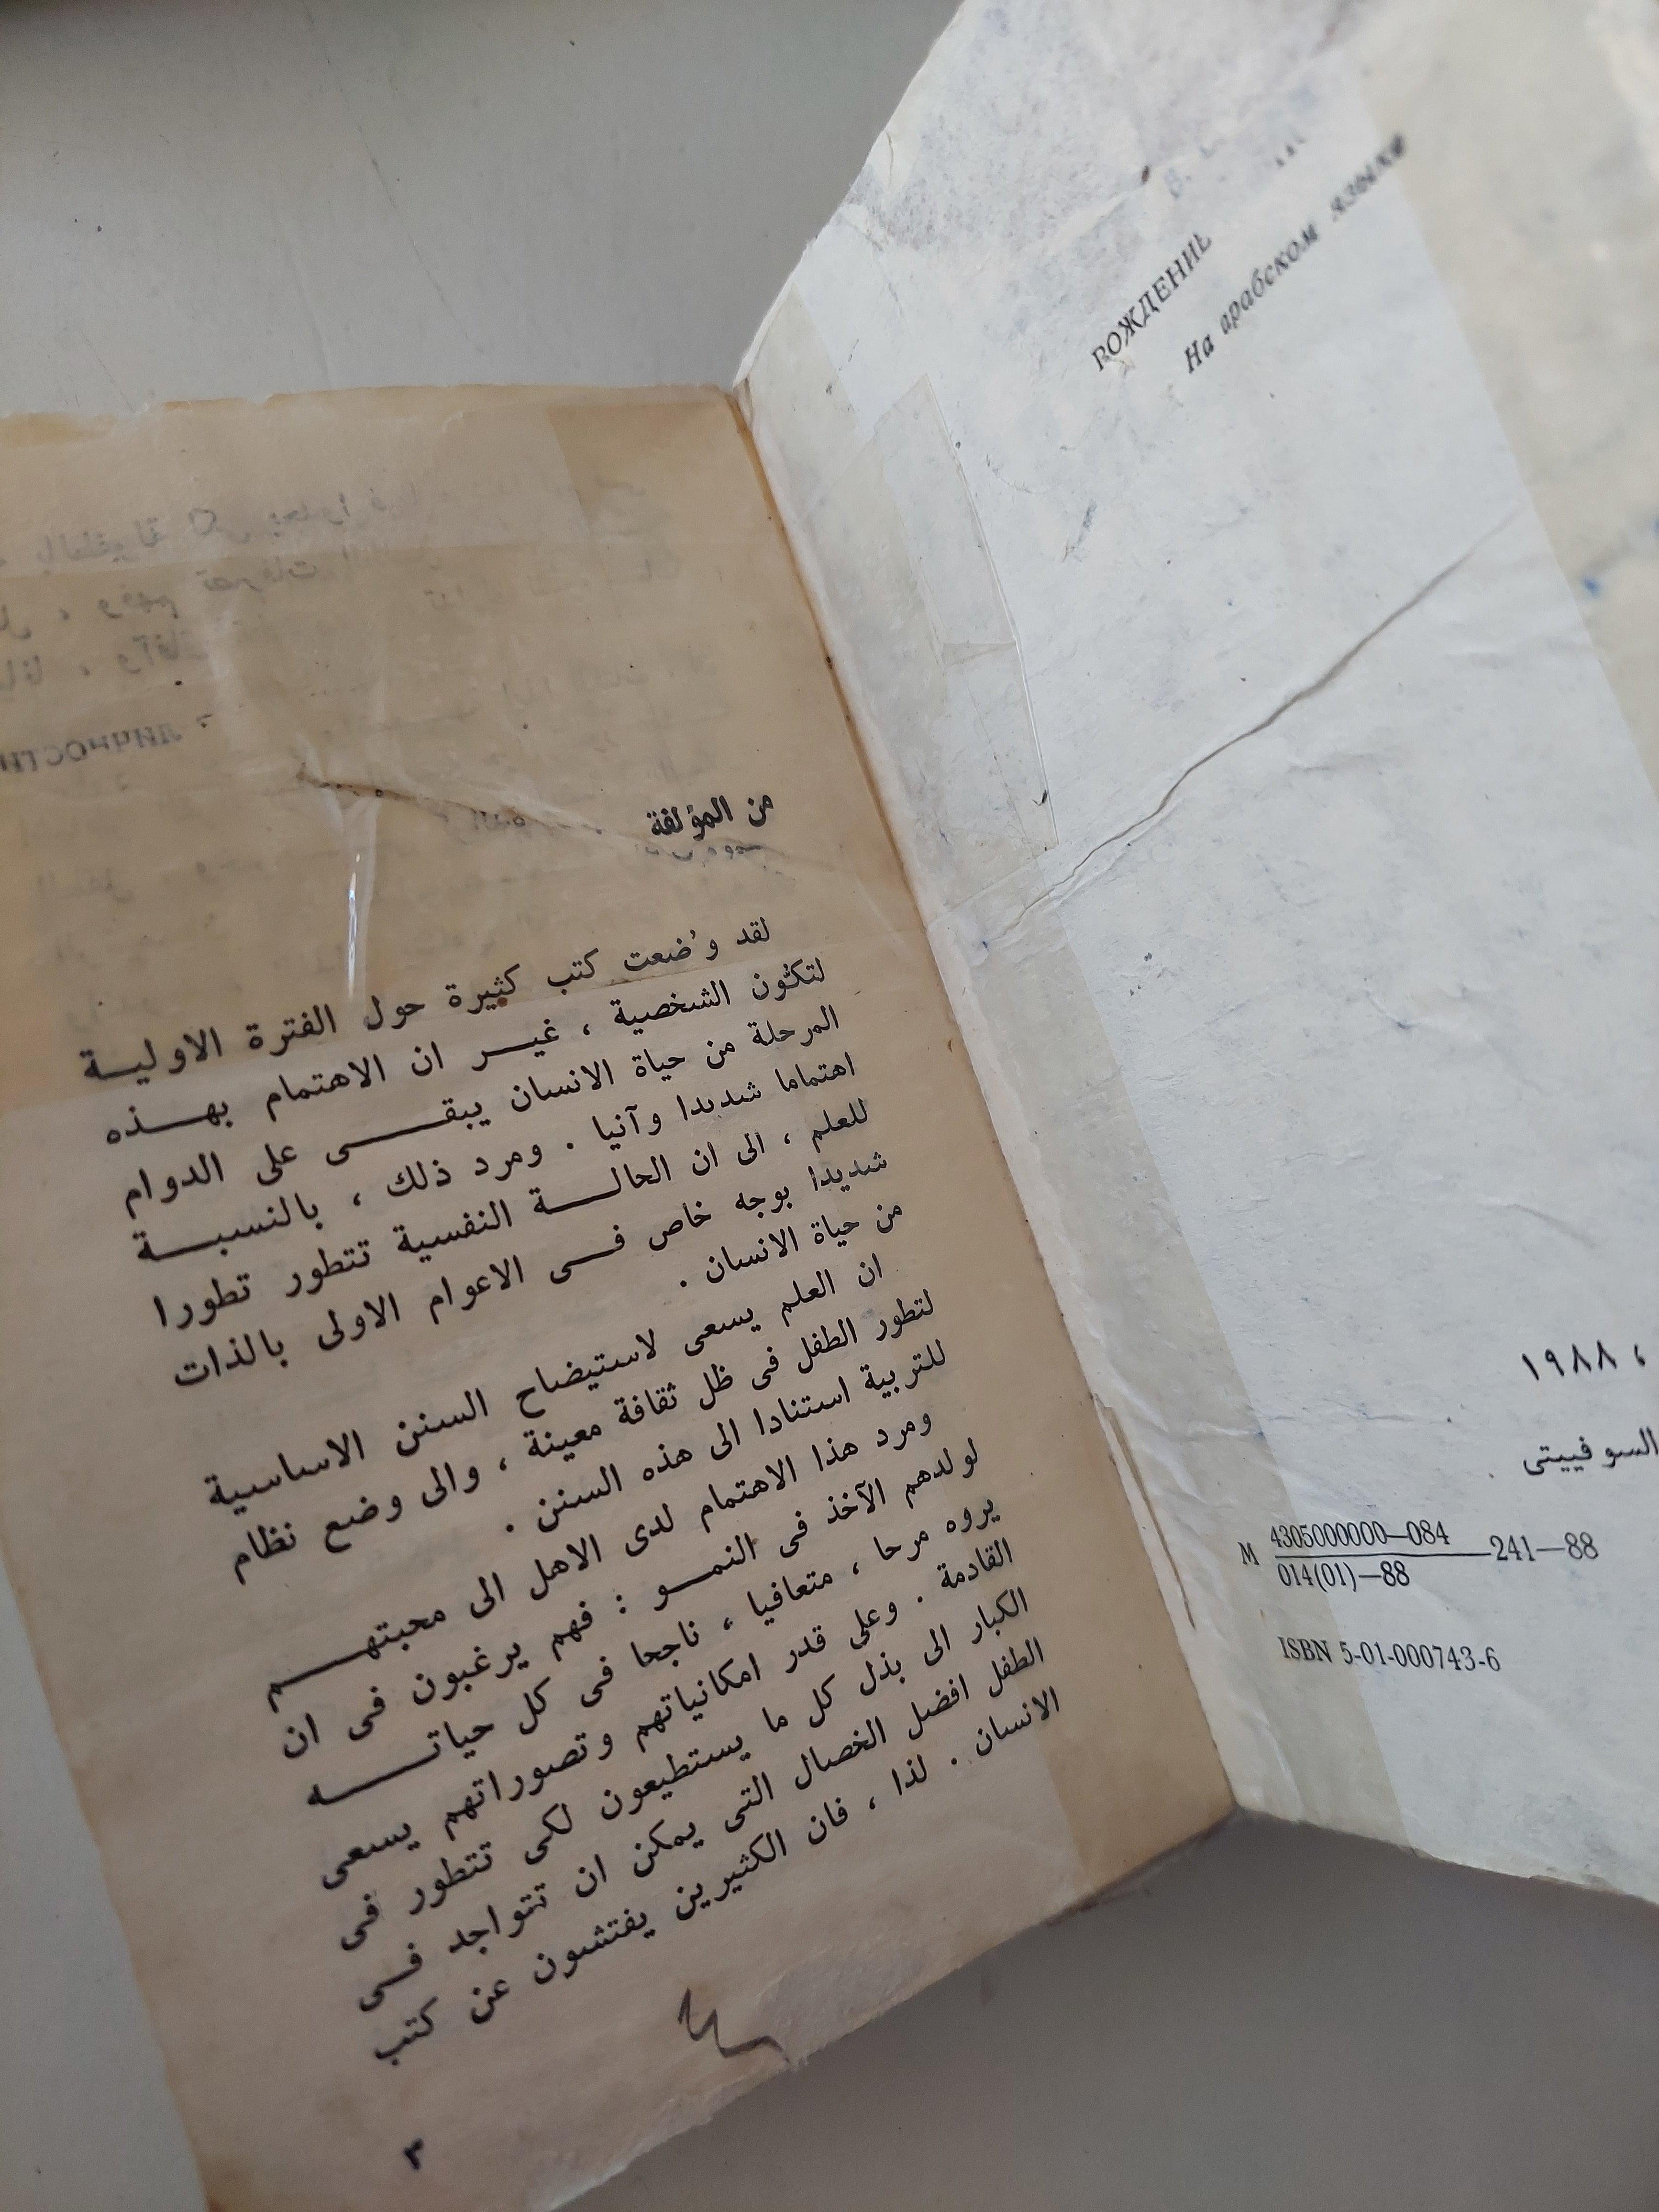 РОЖДЕНИЕ
На арабском языке
، ١٩٨٨
السوفييتى
М 4305000000—084
014(01)—88
—241—88
ISBN 5-01-000743-6
من المؤلفة
لقد و'ضعت كتب كثيرة حول الفترة الاوليـة
لتكوّن الشخصية ، غيـر ان الاهتمام بهـذه
المرحلة من حياة الانسان يبقـى على الدوام
اهتماما شديدا وآنيا . ومرد ذلك ، بالنسبـة
للعلم ، الى ان الحالـة النفسية تتطور تطورا
شديدا بوجه خاص فـى الاعوام الاولى بالذات
من حياة الانسان .
ان العلم يسعى لاستيضاح السنن الاساسية
لتطور الطفل فى ظل ثقافة معينة ، والى وضع نظام
للتربية استنادا الى هذه السنن .
ومرد هذا الاهتمام لدى الاهل الى محبتهـم
لولدهم الآخذ فى النمـو : فهم يرغبون فى ان
يروه مرحا ، متعافيا ، ناجحا فى كل حياتـه
القادمة . وعلى قدر امكانياتهم وتصوراتهم يسعى
الكبار الى بذل كل ما يستطيعون لكى تتطور فى
الطفل افضل الخصال التى يمكن ان تتواجد فـى
الانسان . لذا ، فان الكثيرين يفتشون عن كتب
٣